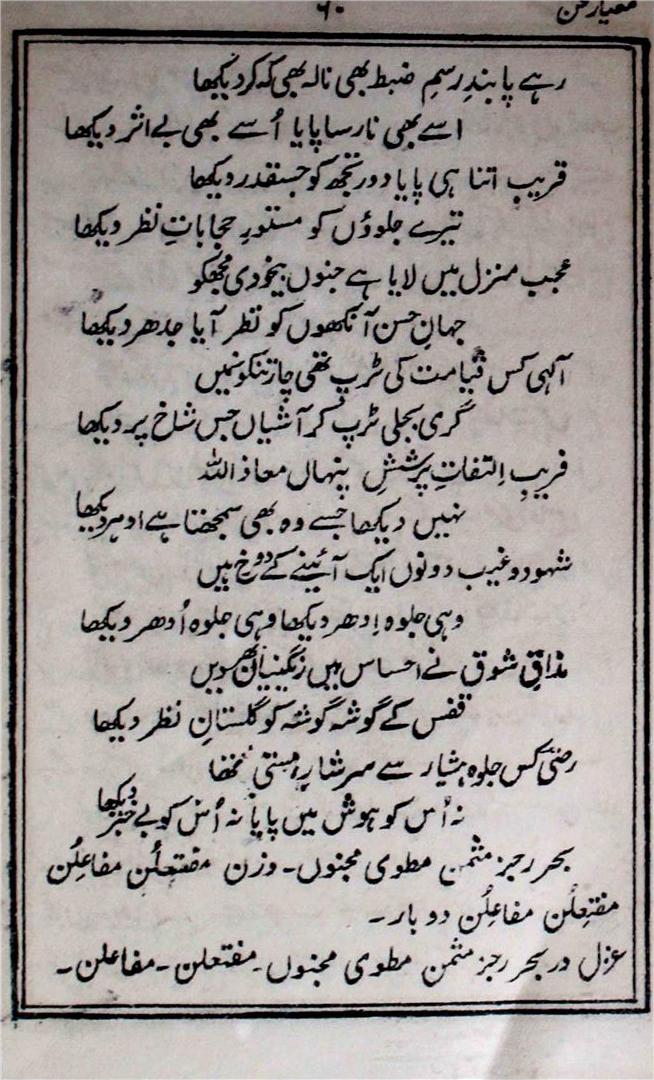 معیار فن
۶۰
رہے پابندِ رسمِ ضبط بھی نالہ بھی کہ کر دیکھا
اسے بھی نارسا پایا اُسے بھی بے اثر دیکھا
قریب اتنا ہی پایا دور تجھ کو جسقدر دیکھا
تیرے جلوؤں کو مستورِ حجاباتِ نظر دیکھا
عجب منزل میں لایا ہے جنوں بیخودی مجھکو
جہانِ حسن آنکھوں کو نظر آیا جدھر دیکھا
آلہی کس قیامت کی ٹرپ تھی چار تنکو نمیں
گری بجلی ٹرپ کر آشیاں جس شاخ پر دیکھا
فریبِ اِلتفاتِ پرششِ پنہاں معاذ اللہ
نہیں دیکھا جسے وہ بھی سمجھتا ہے ادہر دیکھا
شہود و غیب دونوں ایک آئینے کے دو رخ ہیں
وہی جلوہ اِدھر دیکھا وہی جلوہ اُدھر دیکھا
مذاقِ شوق نے احساس میں رنگینیاں بھر دیں
قفس کے گوشہ گوشہ کو گلستانِ نظر دیکھا
رضی کس جلوہ ہشیار سے سرشارِ ہستی تھا
نہ اُس کو ہوش میں پایا نہ اُس کو بے خبر دیکھا
بحر رجز مثمن مطوی مجنوں۔ وزن مفتعلُن مفاعِلُن
مفتِعلُن مفاعِلُن دو بار۔
غزل در بحر رجز مثمن مطوی مجنوں۔ مفتعلن۔ مفاعلن۔